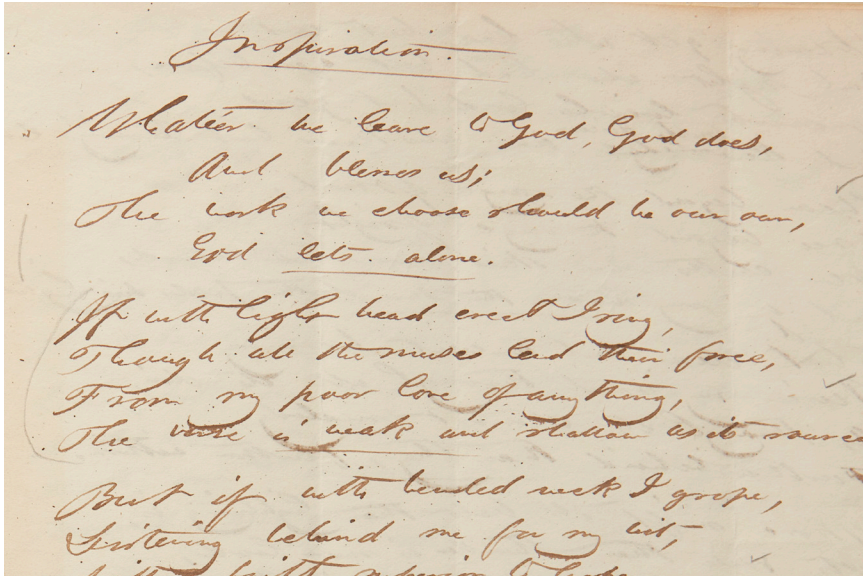 Inspiration.
Whate'er we leave to God, God does,
And blesses us;
The work we choose should be our own,
God lets alone.
If with light head erect I sing,
Though all the muses lend their force,
From my poor love of anything,
The verse is weak and shallow as its source
But if with bended neck I grope,
Listening behind me for my wit,
With faith superior to hope